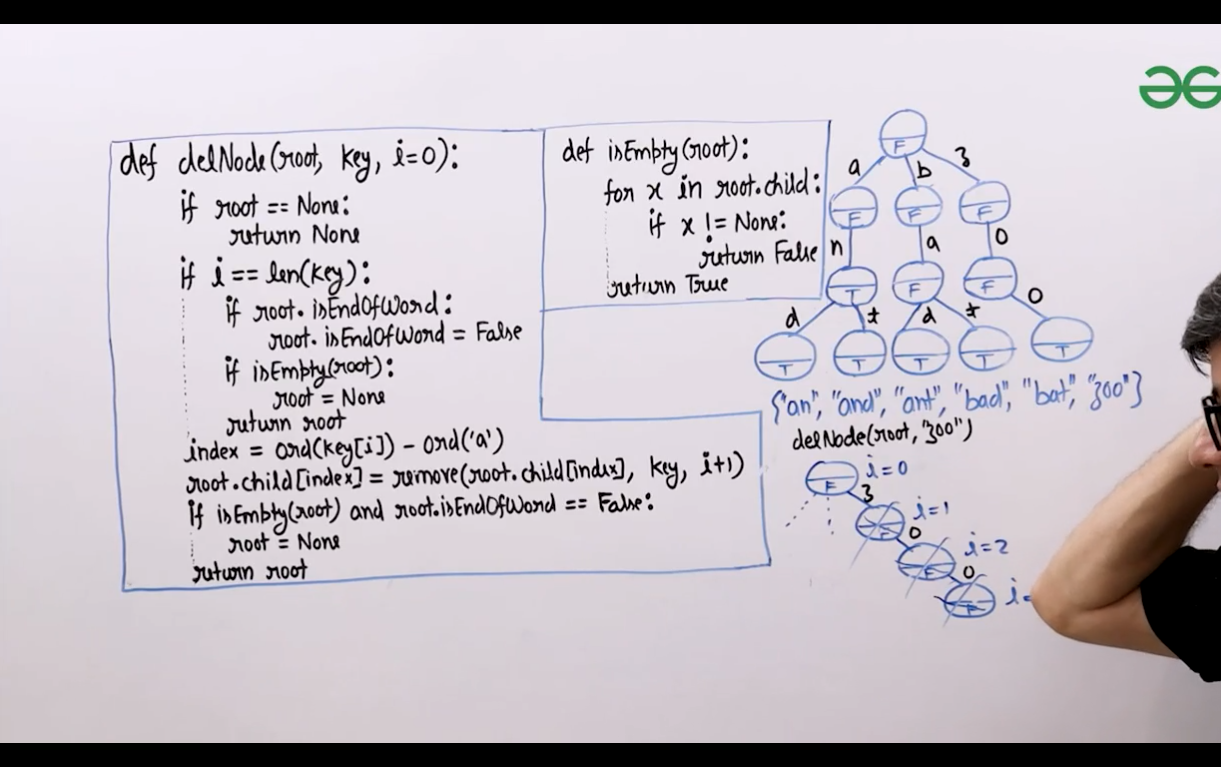 def delNode(root, key, i=0):
if root == None:
return None
if i == len(key):
if root. isEndOfWord:
root. isEndOfWord = False
if isEmpty(root):
root = None
return root
index = ord(key[i]) - ord('a')
root.child[index] = remove(root.child[index], key, i+1)
if isEmpty(root) and root.isEndOfWord == False:
root = None
return root
def isEmpty(root):
for x in root.child:
if x != None:
return False
return True
F
a b z
F F F
n a o
T F F
d t d t o
T T T T T
{"an", "and", "ant", "bad", "bat", "zoo"}
delNode(root, "zoo")
F i=0
z
F i=1
o
F i=2
o
F i=